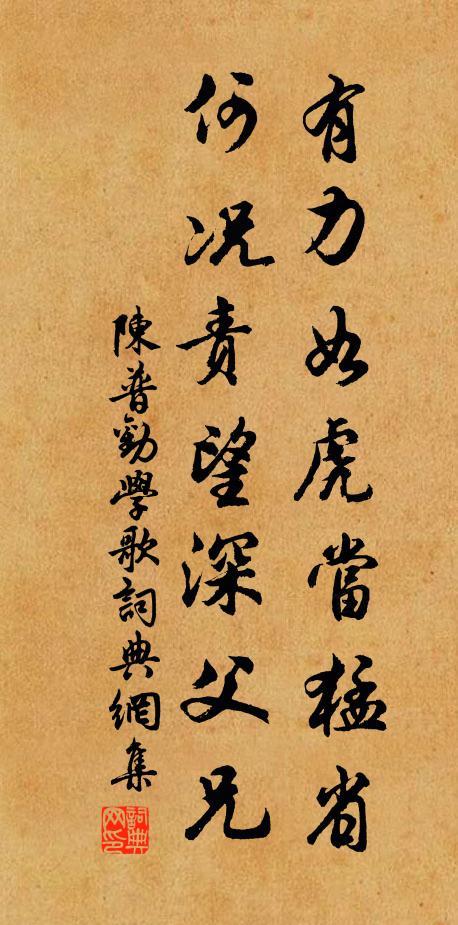 有力如虎當猛省
何况責望深父兄
陳普勸學歌詞典網集
詞典网印